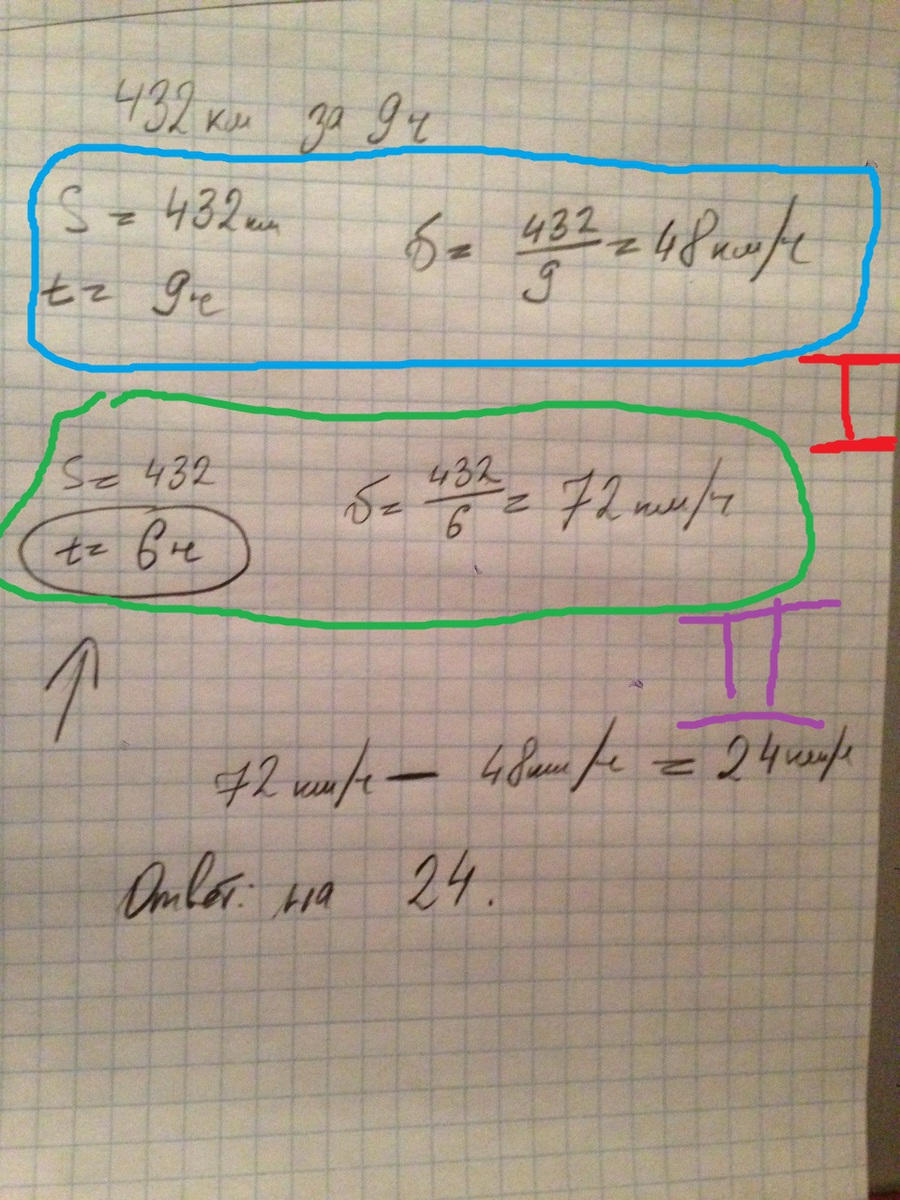 432 км за 9 ч
S = 432 км
t = 9 ч
v = 432/9 = 48 км/ч
I
S = 432
t = 6 ч
v = 432/6 = 72 км/ч
II
72 км/ч – 48 км/ч = 24 км/ч
Ответ: на 24.